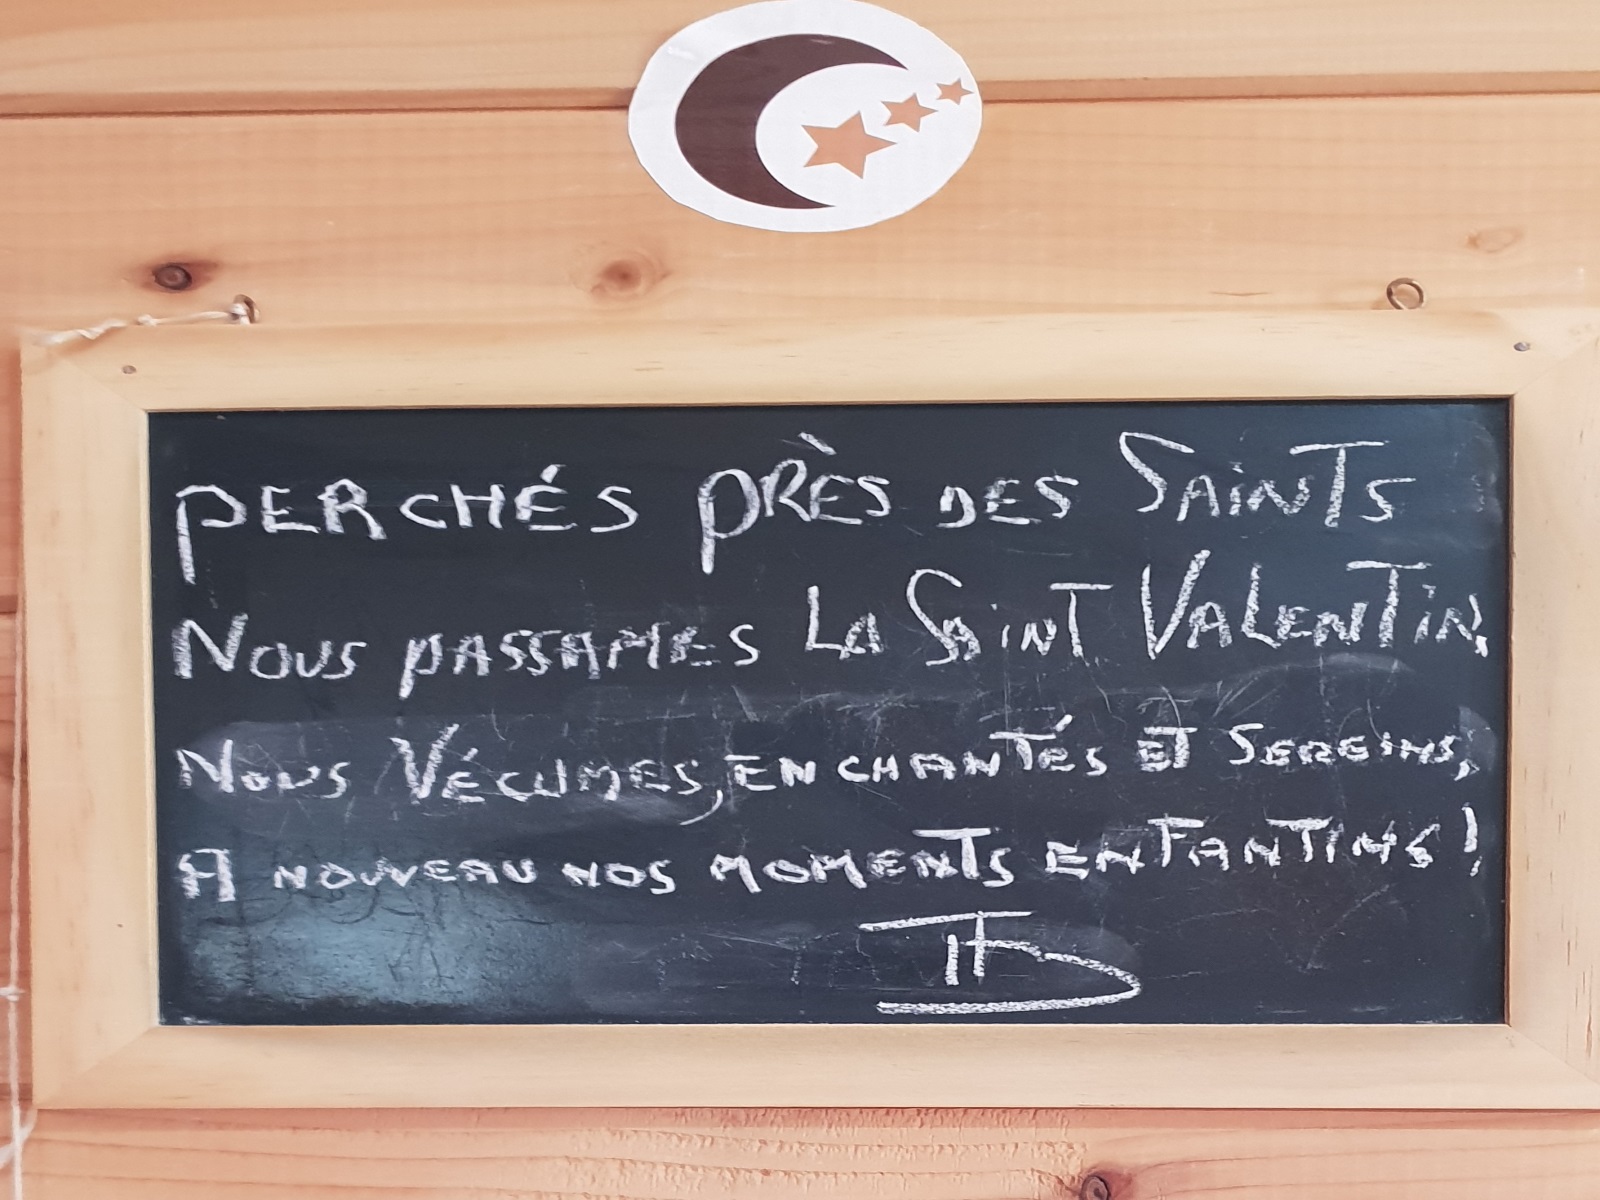 PERCHÉS PRÈS DES SAINTS
NOUS PASSAMES LA SAINT VALENTIN.
NOUS VÉCUMES, ENCHANTÉS ET SEREINS,
A NOUVEAU NOS MOMENTS ENFANTINS !